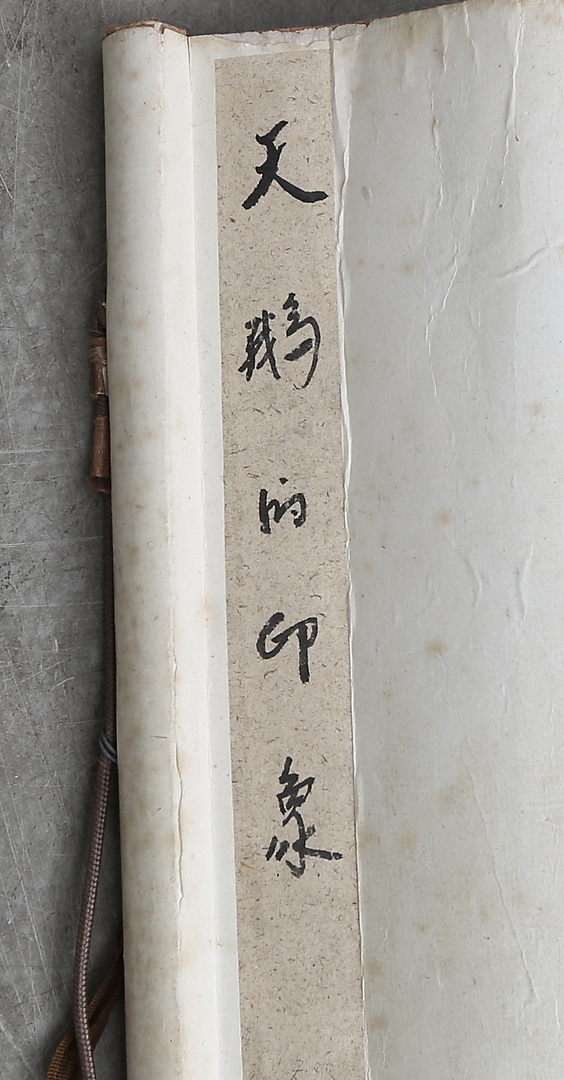 天鹅的印象